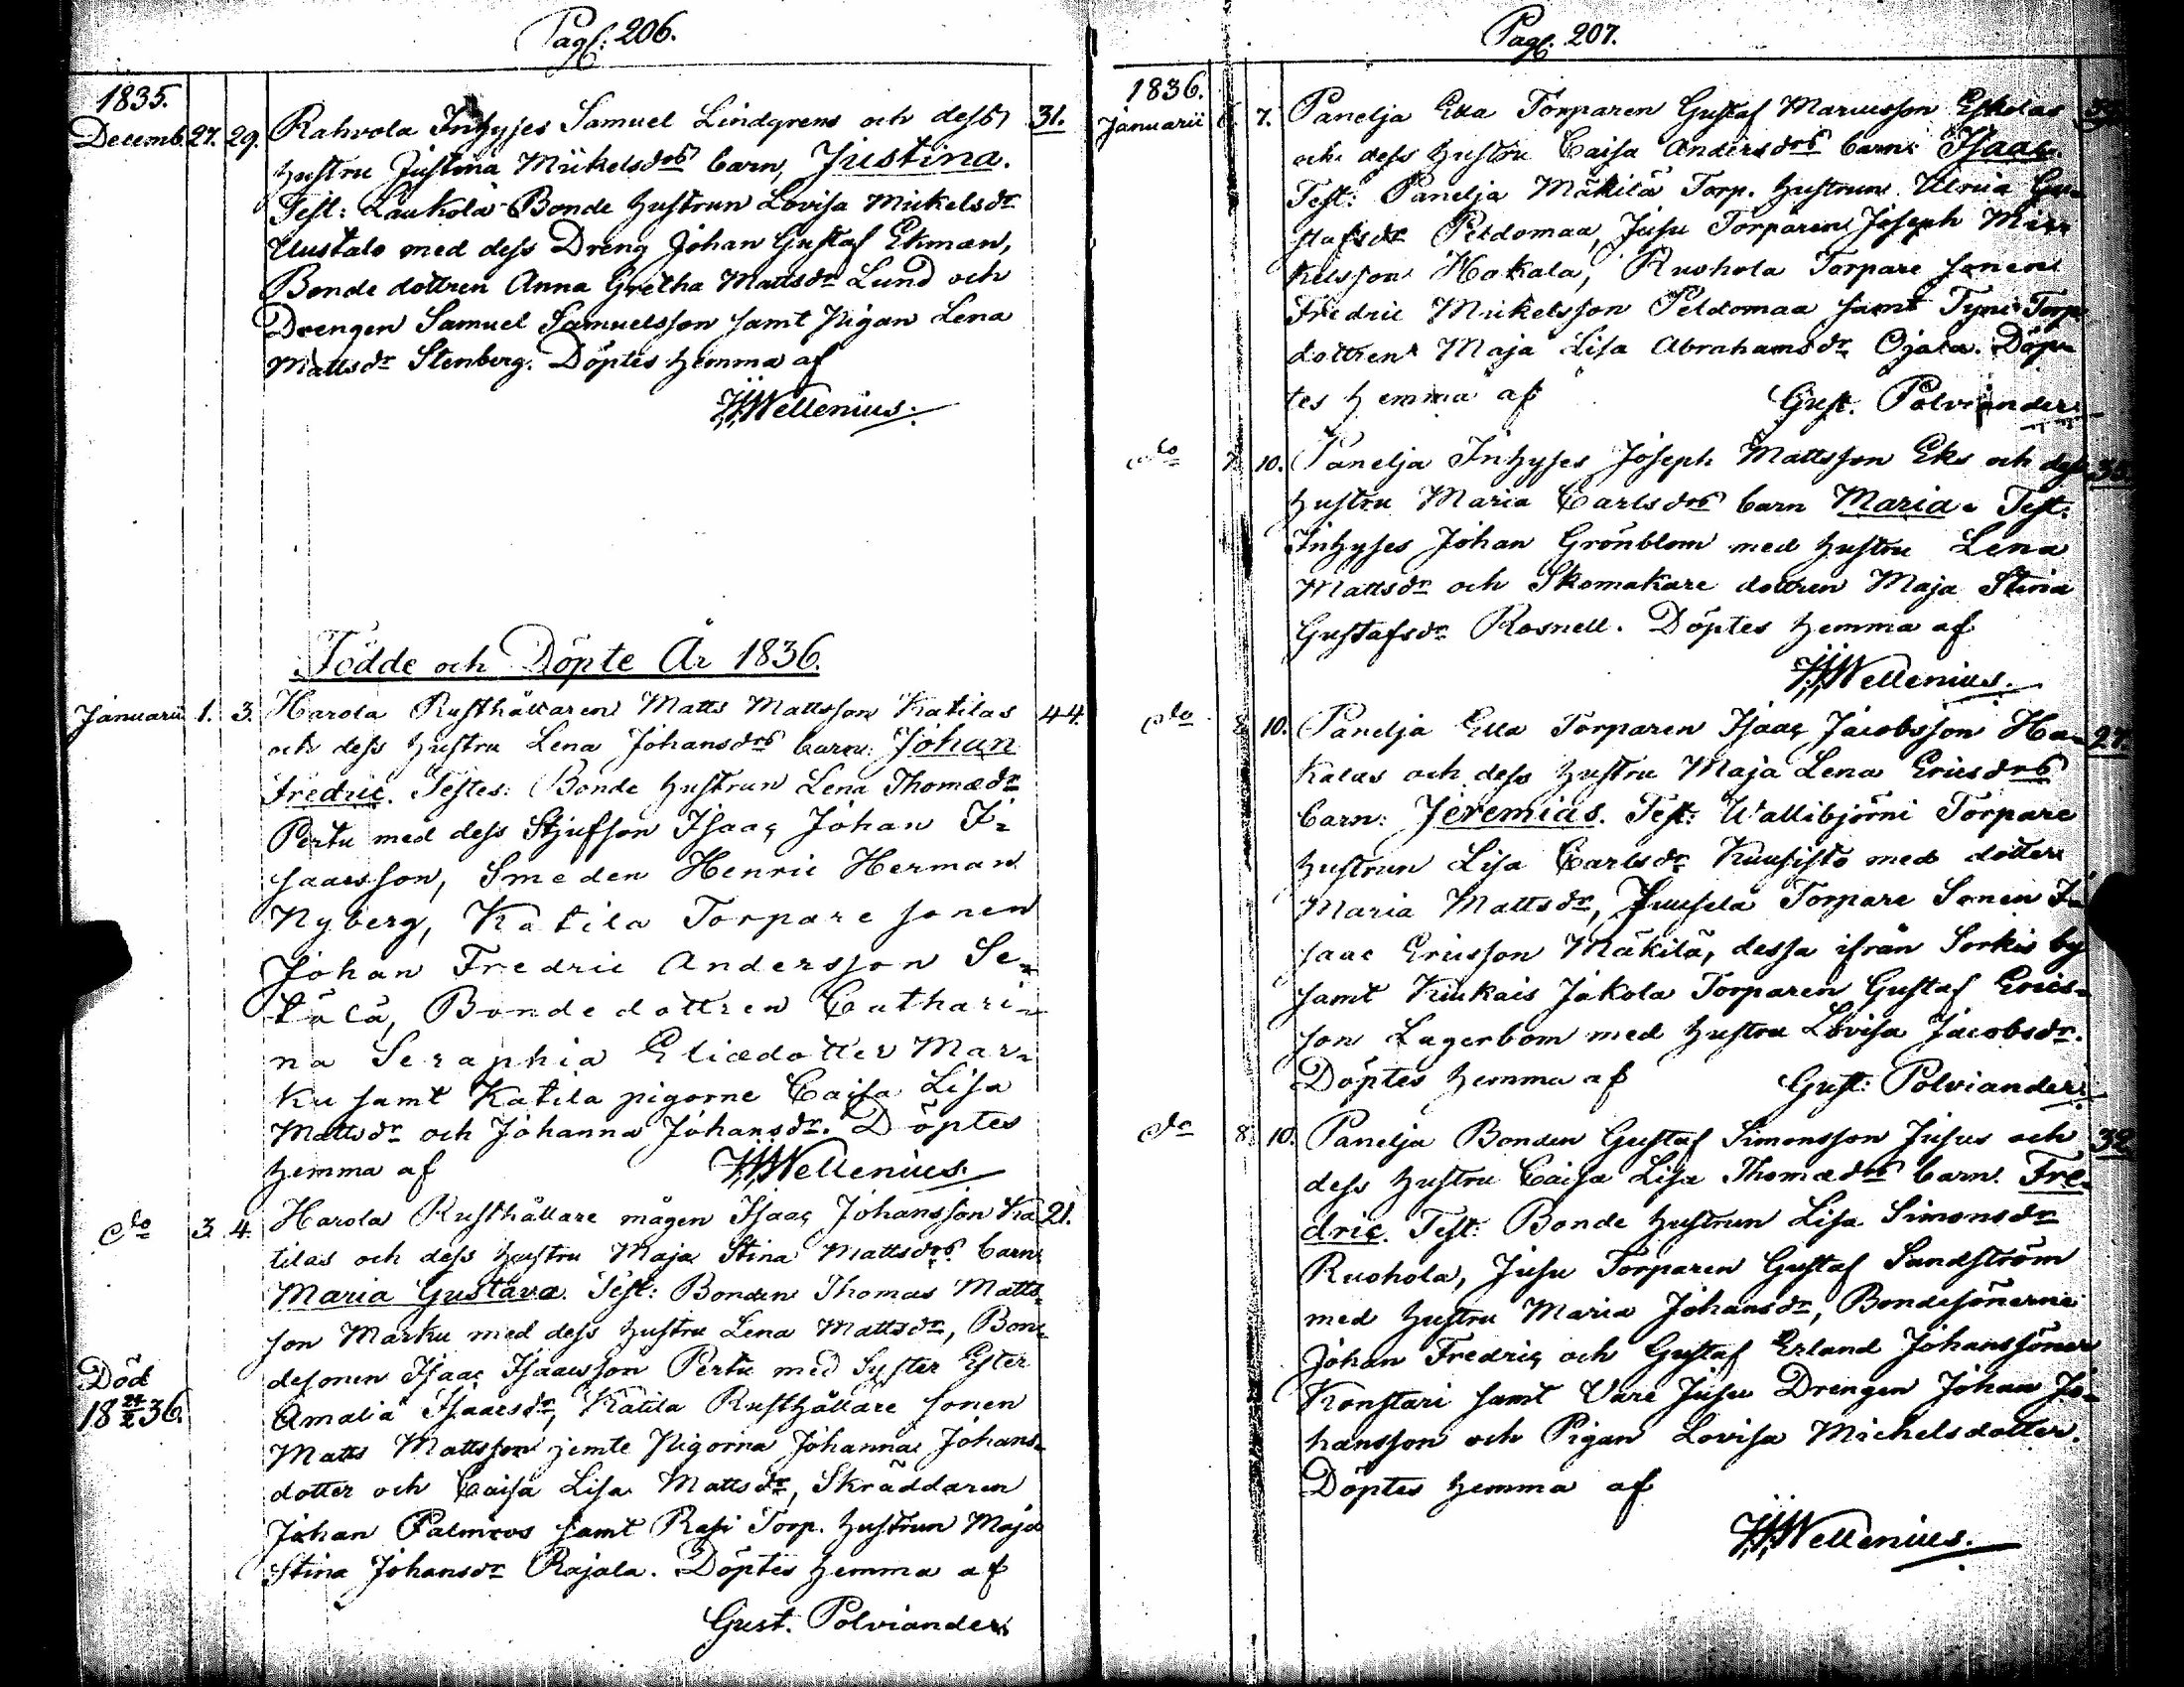 Pag: 206.
1835.
Decemb. 27. 29. Rahvola Inhyses Samuel Lindgrens och dess 31.
hustru Justina Mickelsdrs barn, Justina.
Test: Laukola Bonde hustrun Lovisa Mickelsdr
Uustalo med dess Dreng Johan Gustaf Ekman,
Bonde dottren Anna Gretha Mattsdr Lund och
Drengen Samuel Samuelsson samt Pigan Lena
Mattsdr Stenberg. Döptes hemma af
Wellenius.
Födde och Döpte År 1836.
Januarii 1. 3. Harola Rusthållaren Matts Mattsson Katilas 44.
och dess hustru Lena Johansdrs barn: Johan
Fredric. Testes: Bonde hustrun Lena Thomædr
Pertu med dess Stjufson Isaac Johan I-
saacsson, Smeden Henric Herman
Nyberg, Katila Torpare sonen
Johan Fredric Andersson Se-
tälä, Bonde dottren Cathari-
na Seraphia Eliædotter Mar-
ku samt Katila pigorne Caisa Lisa
Mattsdr och Johanna Johansdr. Döptes
hemma af Wellenius.
do 3. 4. Harola Rusthållare mågen Isaac Johansson Ka- 21.
tilas och dess hustru Maja Stina Mattsdrs barn
Maria Gustava. Test: Bonden Thomas Matts-
son Marku med dess hustru Lena Mattsdr, Bon-
desonen Isaac Isaacsson Pertu med Syster Ester
Amalia Isaacsdr, Katila Rusthållare sonen
Matts Mattsson jemte Pigorna Johanna Johans-
dotter och Caisa Lisa Mattsdr, Skräddaren
Johan Palmroos samt Rasi Torp. hustrun Maja
Stina Johansdr Rajala. Döptes hemma af
Gust. Polviander
Död
18 24/2 36.
Pag: 207.
1836.
Januarii 6. 7. Panelja Eka Torparen Gustaf Mariusson Eskolas
och dess hustru Caisa Andersdrs barn: Isaac.
Test: Panelja Mäkilä Torp. hustrun Ulrica Gu-
stafsdr Peldomaa, Jusu Torparen Joseph Mic-
kelsson Hakala, Ruohola Torpare sonen
Fredric Mickelsson Peldomaa samt Tyni Torp.
dottren Maja Lisa Abrahamsdr Ojala. Döp-
tes hemma af Gust. Polviander.
do 7. 10. Panelja Inhyses Joseph Mattsson Eks och dess
hustru Maria Carlsdrs barn Maria. Test:
Inhyses Johan Grönblom med hustru Lena
Mattsdr och Skomakare dottren Maja Stina
Gustafsdr Rosnell. Döptes hemma af
Wellenius.
do 10. Panelja Eka Torparen Isaac Jacobsson Ha- 27.
kalas och dess hustru Maja Lena Ericsdrs
barn: Jeremias. Test: Wallibjörni Torpare
hustrun Lisa Carlsdr Kuusisto med dotter
Maria Mattsdr, Juusela Torpare Sonen I-
saac Ericsson Mäkilä, dessa ifrån Sorkis by
samt Kiukais Jakola Torparen Gustaf Erics-
son Lagerbom med hustru Lovisa Jacobsdr.
Döptes hemma af Gust: Polviander.
do 8. 10. Panelja Bonden Gustaf Simonsson Jusus och 32
dess hustru Caisa Lisa Thomædrs barn. Fre-
dric. Test: Bonde hustrun Lisa Simonsdr
Ruohola, Jusu Torparen Gustaf Sandström
med hustru Maria Johansdr, Bondesönerne
Johan Fredric och Gustaf Erland Johanssöner
Konstari samt Vare Jusu Drengen Johan Jo-
hansson och Pigan Lovisa Michelsdotter.
Döptes hemma af
Wellenius.